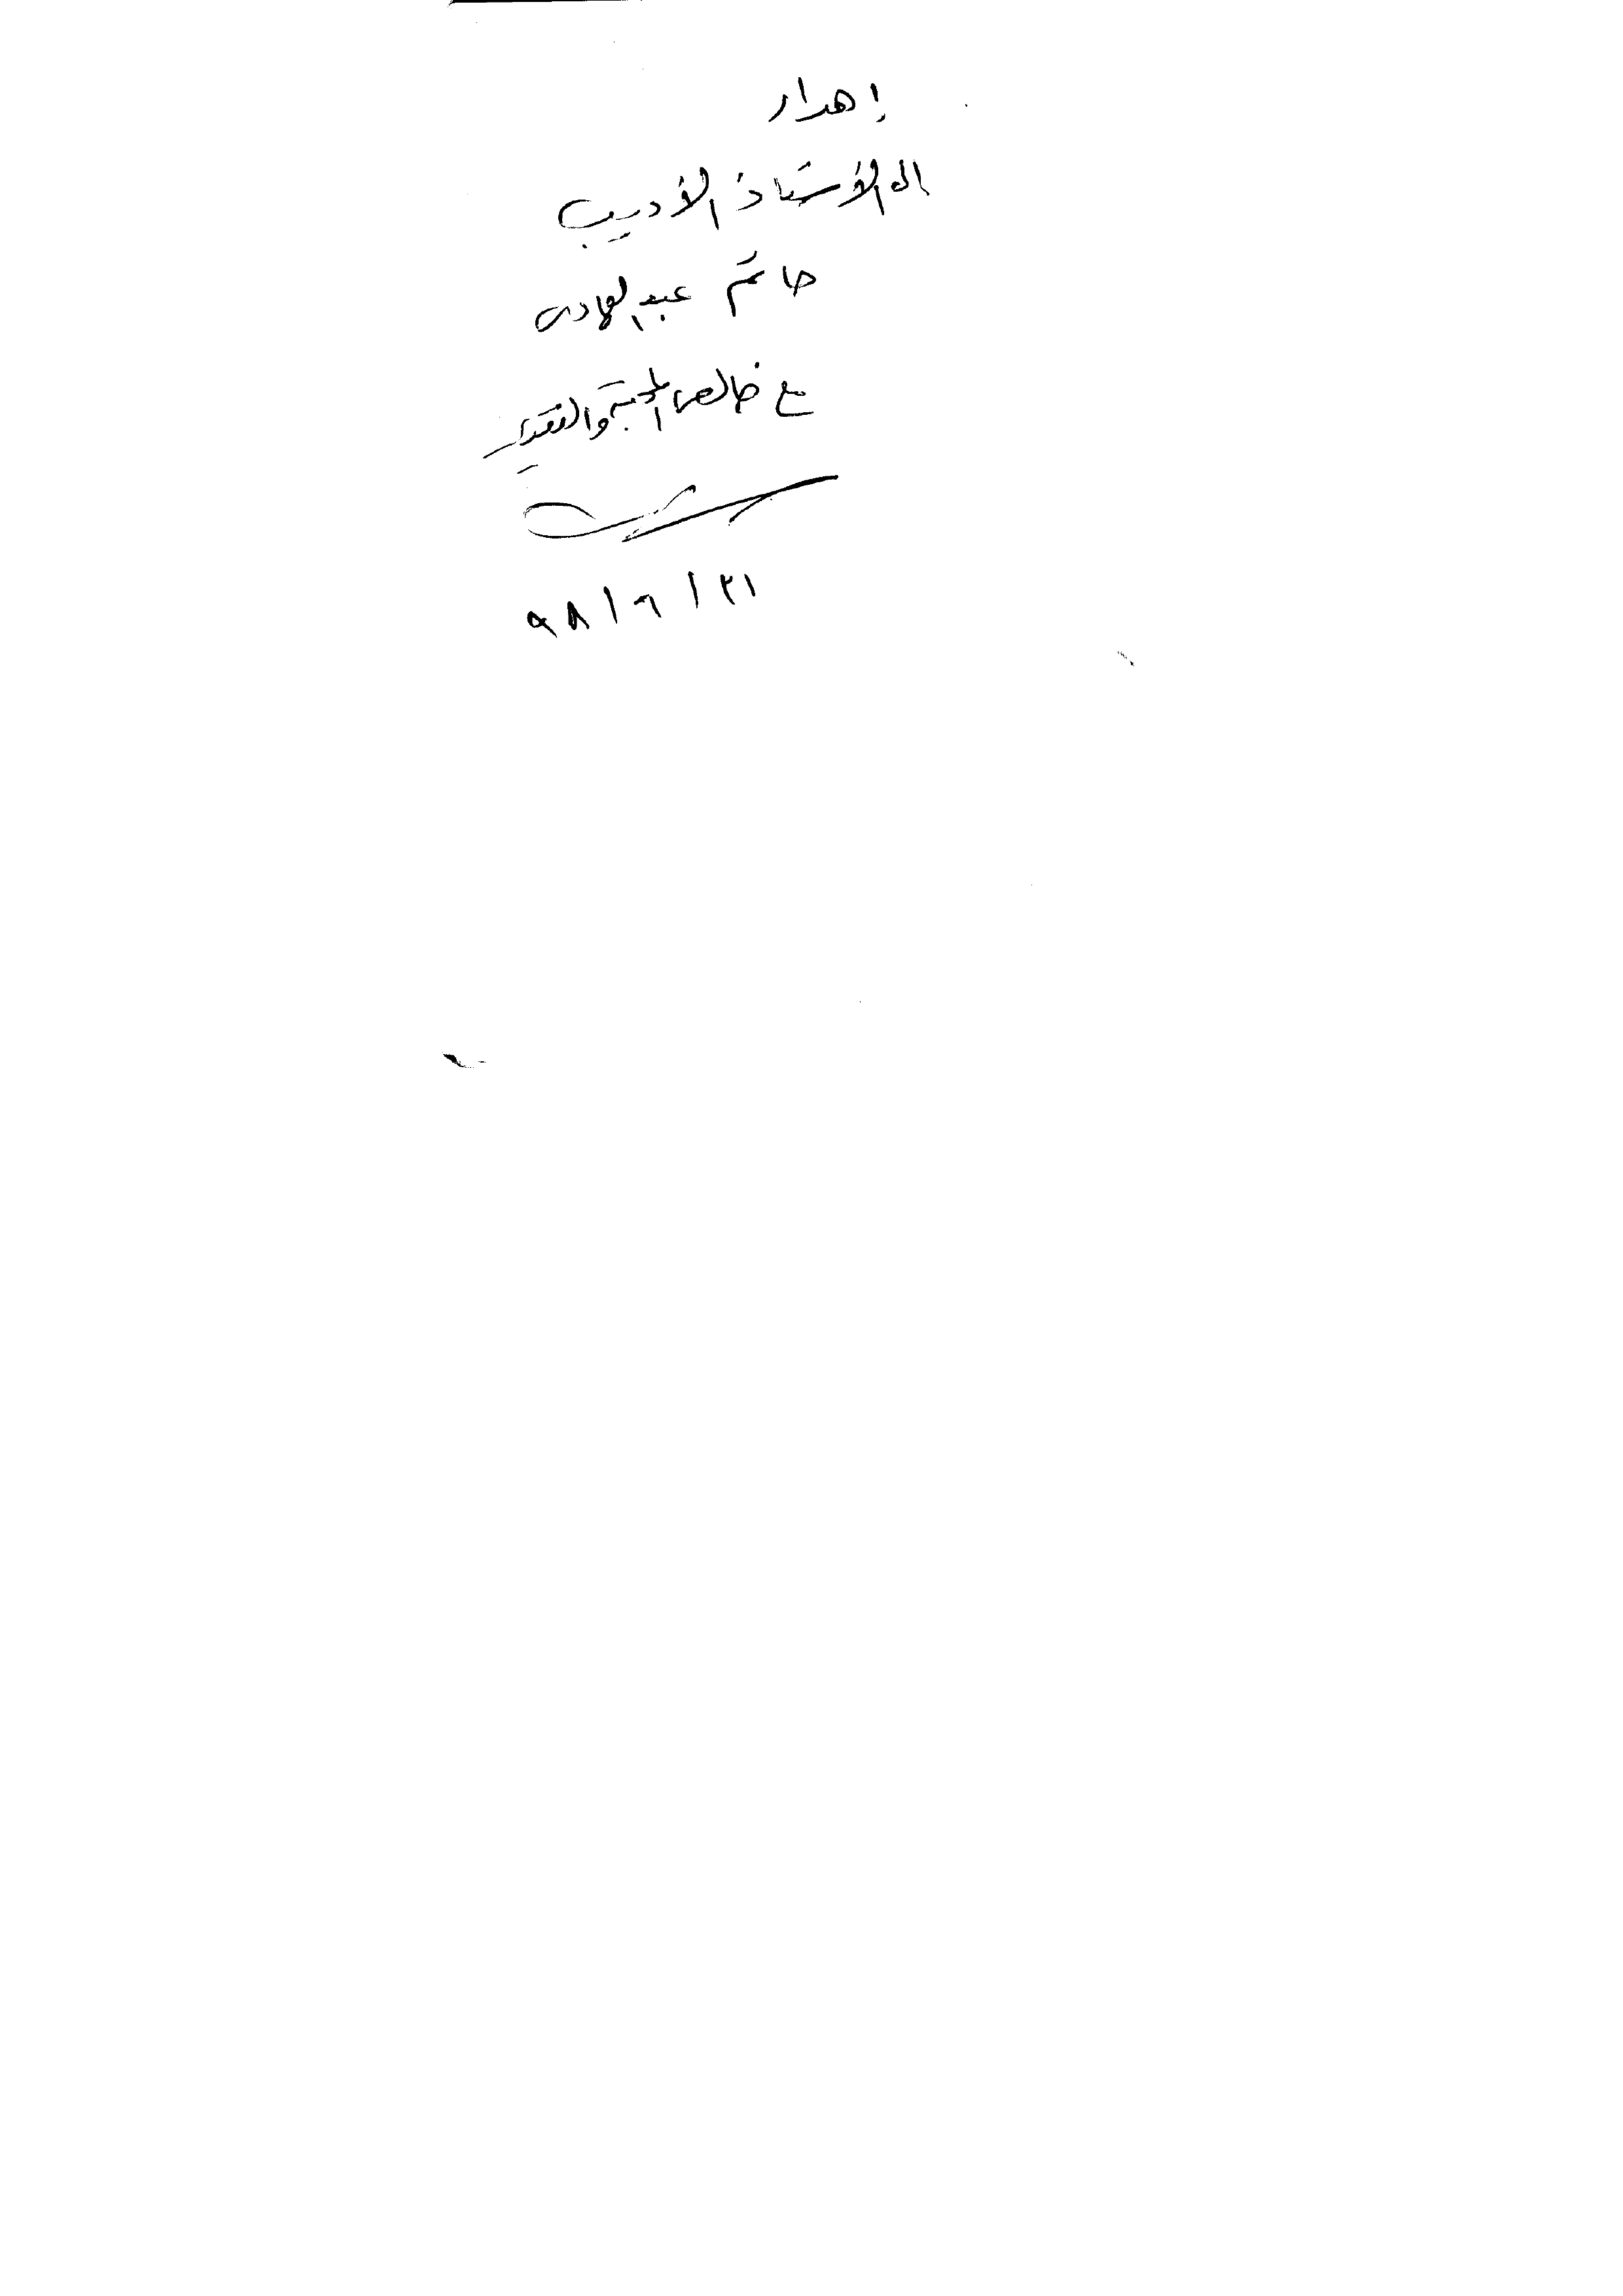 إهداء
إلى الأستاذ الأديب
حاتم عبد الهادى
مع خالص المحبة والتقدير
٢١ / ٦ / ٩٨